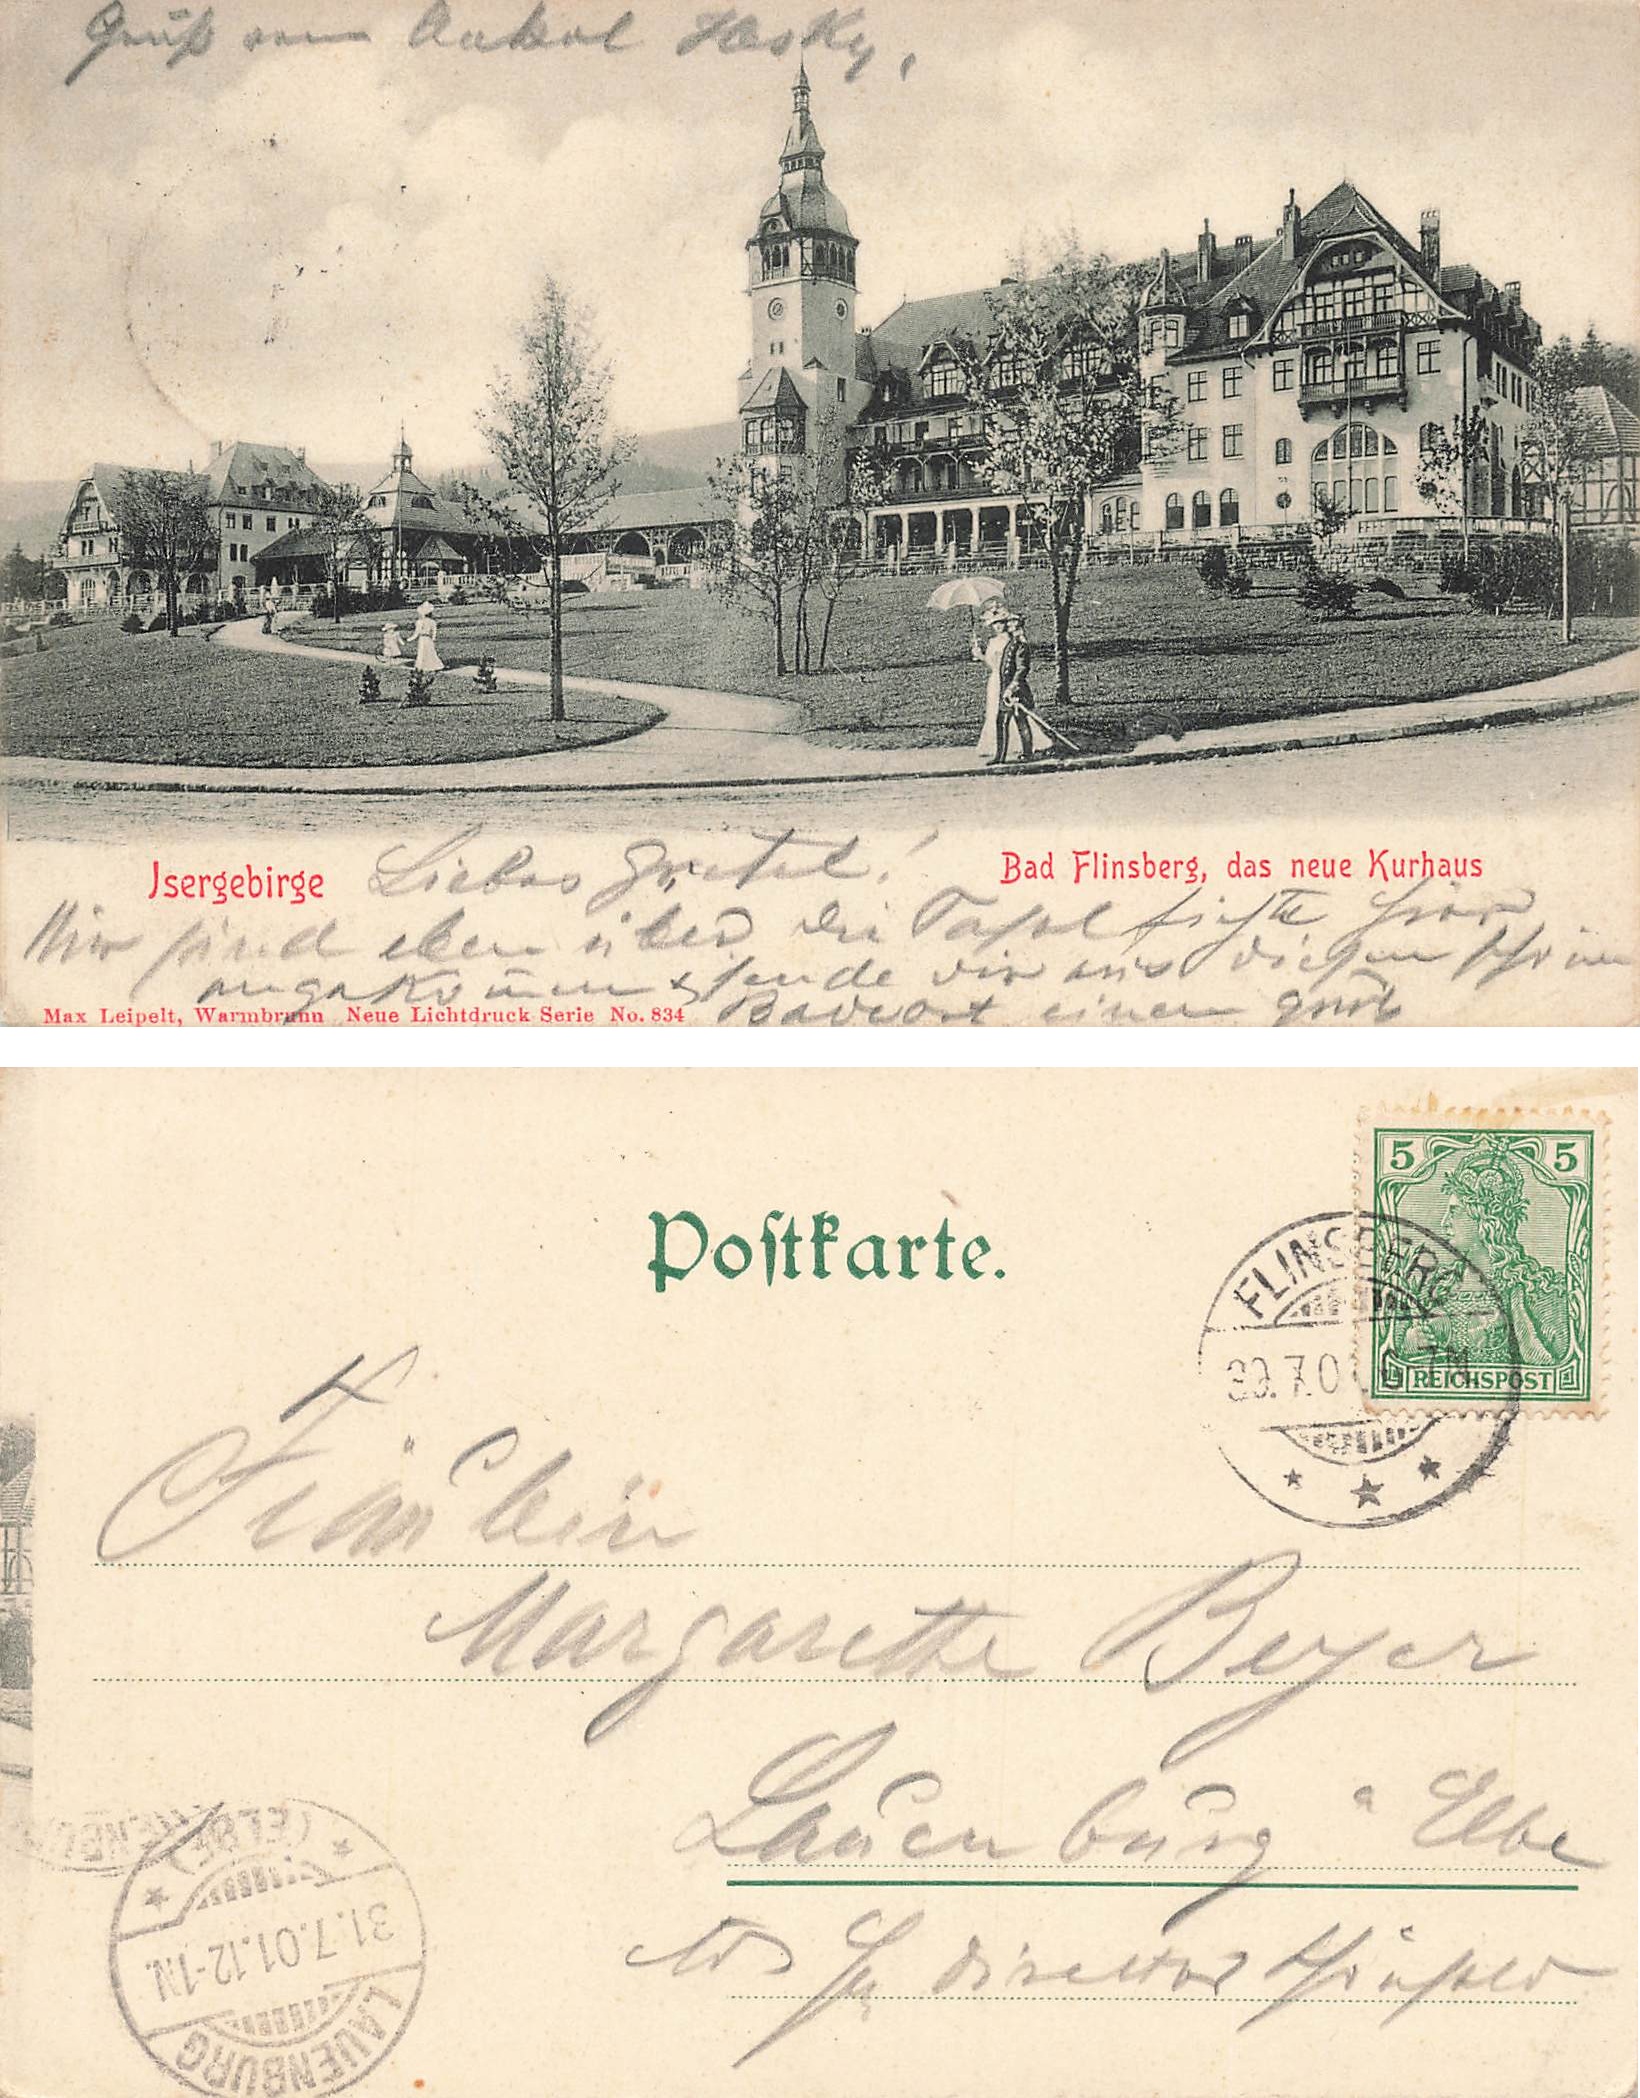 Gruß vom Onkel
Isergebirge
Bad Flinsberg, das neue Kurhaus
Liebes Gretel!
Wir sind eben über die Tafelfichte hier
angekommen & sende dir aus diesem schönen
Max Leipelt, Warmbrunn Neue Lichtdruck Serie No. 834
Badeort einen gruß
Postkarte.
5 5
REICHSPOST
FLINSBERG
7.0
Fräulein
Margarethe Beyer
Lauenburg a Elbe
director
LAUENBURG
(ELBE)
31.7.01.12-1N.